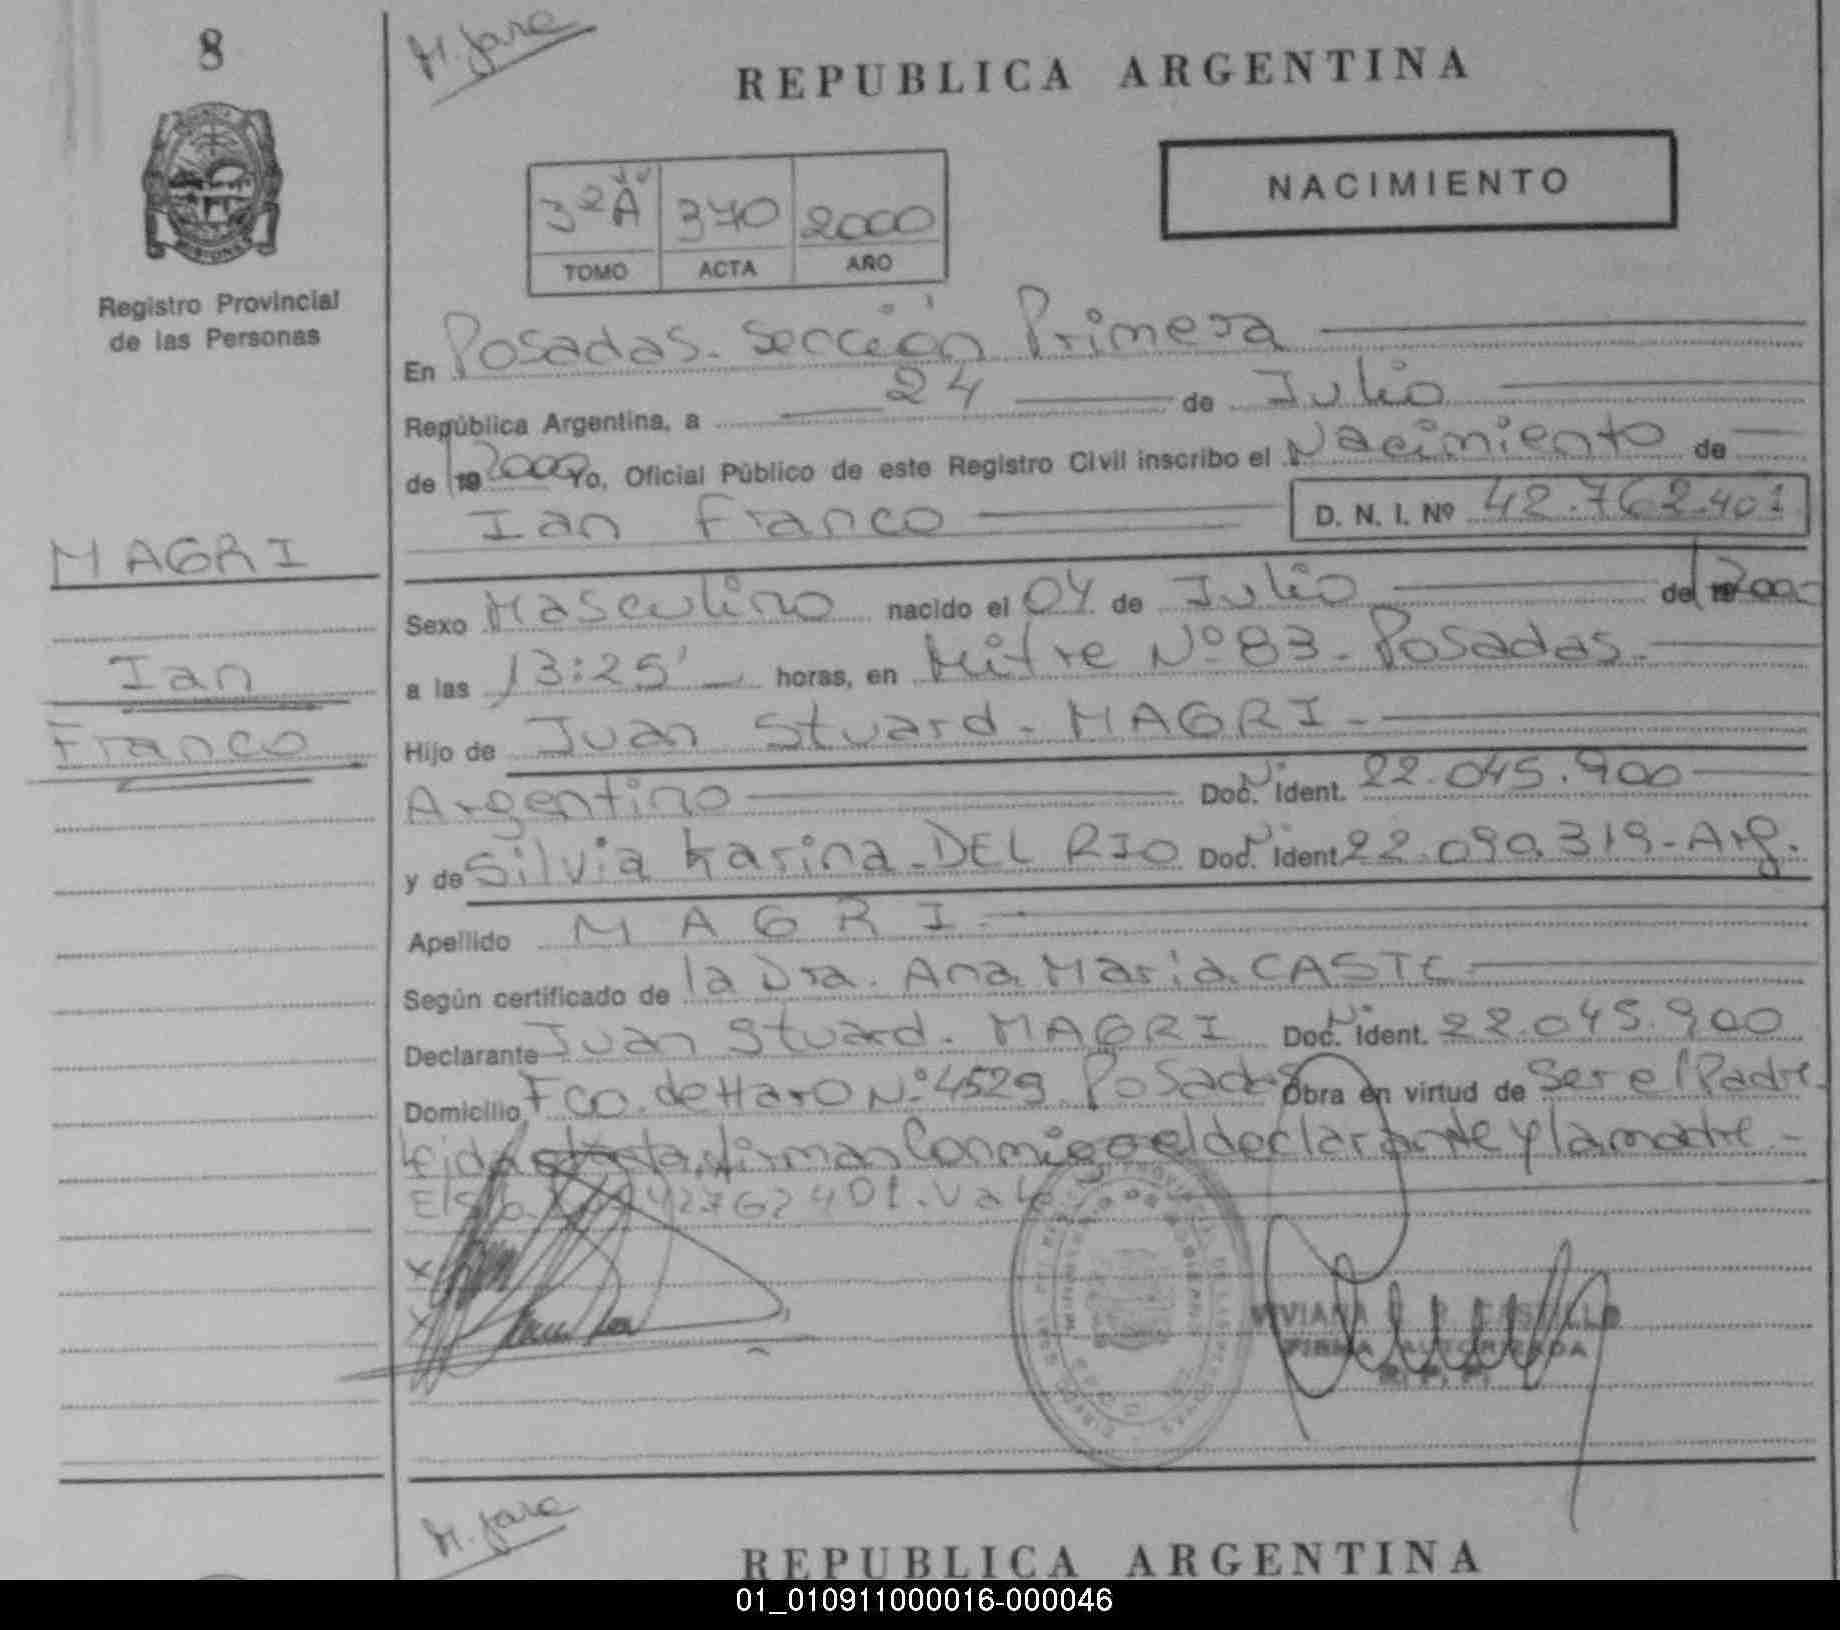 8
M. Jara
REPUBLICA ARGENTINA
NACIMIENTO
3 2 "A" 370 2000
TOMO ACTA AÑO
Registro Provincial
de las Personas
En Posadas. Sección Primera
República Argentina, a 24 de Julio
de 19 2000 Yo, Oficial Público de este Registro Civil inscribo el Nacimiento de
Ian Franco D. N. I. Nº 42.762.401
MAGRI
Ian
Franco
Sexo Masculino nacido el 04 de Julio de 19 2000
a las 13:25' horas, en Mitre Nº 83 - Posadas.
Hijo de Juan Stuard - MAGRI -
Argentino Doc. Ident. 22.045.900
y de Silvia Karina - DEL RIO Doc. Ident 22.090.319 - Arg.
Apellido MAGRI -
Según certificado de la Dra. Ana Maria
Declarante Juan Stuard - MAGRI Doc. Ident. 22.045.900
Domicilio Fco. de Haro Nº 4529 Posadas Obra en virtud de Ser el Padre.
Leida acta, firman Conmigo el declarante y la madre -
42762401. Vale
X
X
VIVIANA CASTILLO
FIRMA AUTORIZADA
R. P. P.
M. Jara
REPUBLICA ARGENTINA
01_010911000016-000046